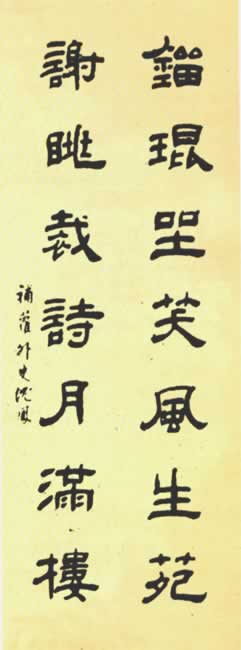 鎦琨坐笑風生苑
謝眺裁詩月滿樓
補蘿外史沈鳳